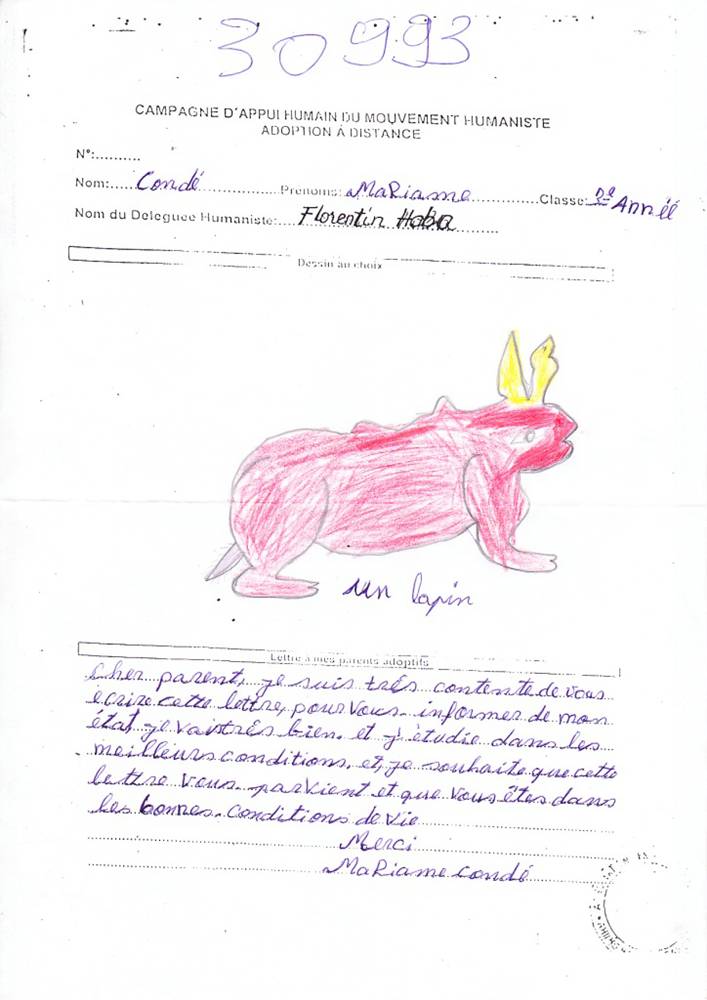 30993
CAMPAGNE D'APPUI HUMAIN DU MOUVEMENT HUMANISTE
ADOPTION À DISTANCE
N°:..........
Nom:.....Condé................Prénoms: MaRiame............Classe: 2e Année
Nom du Deleguee Humaniste:....Florentin Haba
Dessin au choix
un lapin
Lettre à mes parents adoptifs
cher parent, je suis trés contente de vous
ecrire cette lettre, pour vous informer de mon
état, je vais trés bien. et j'étudie dans les
meilleurs conditions. et, je souhaite que cette
lettre vous parvient et que vous êtes dans
les bonnes conditions de vie
Merci
MaRiame condé